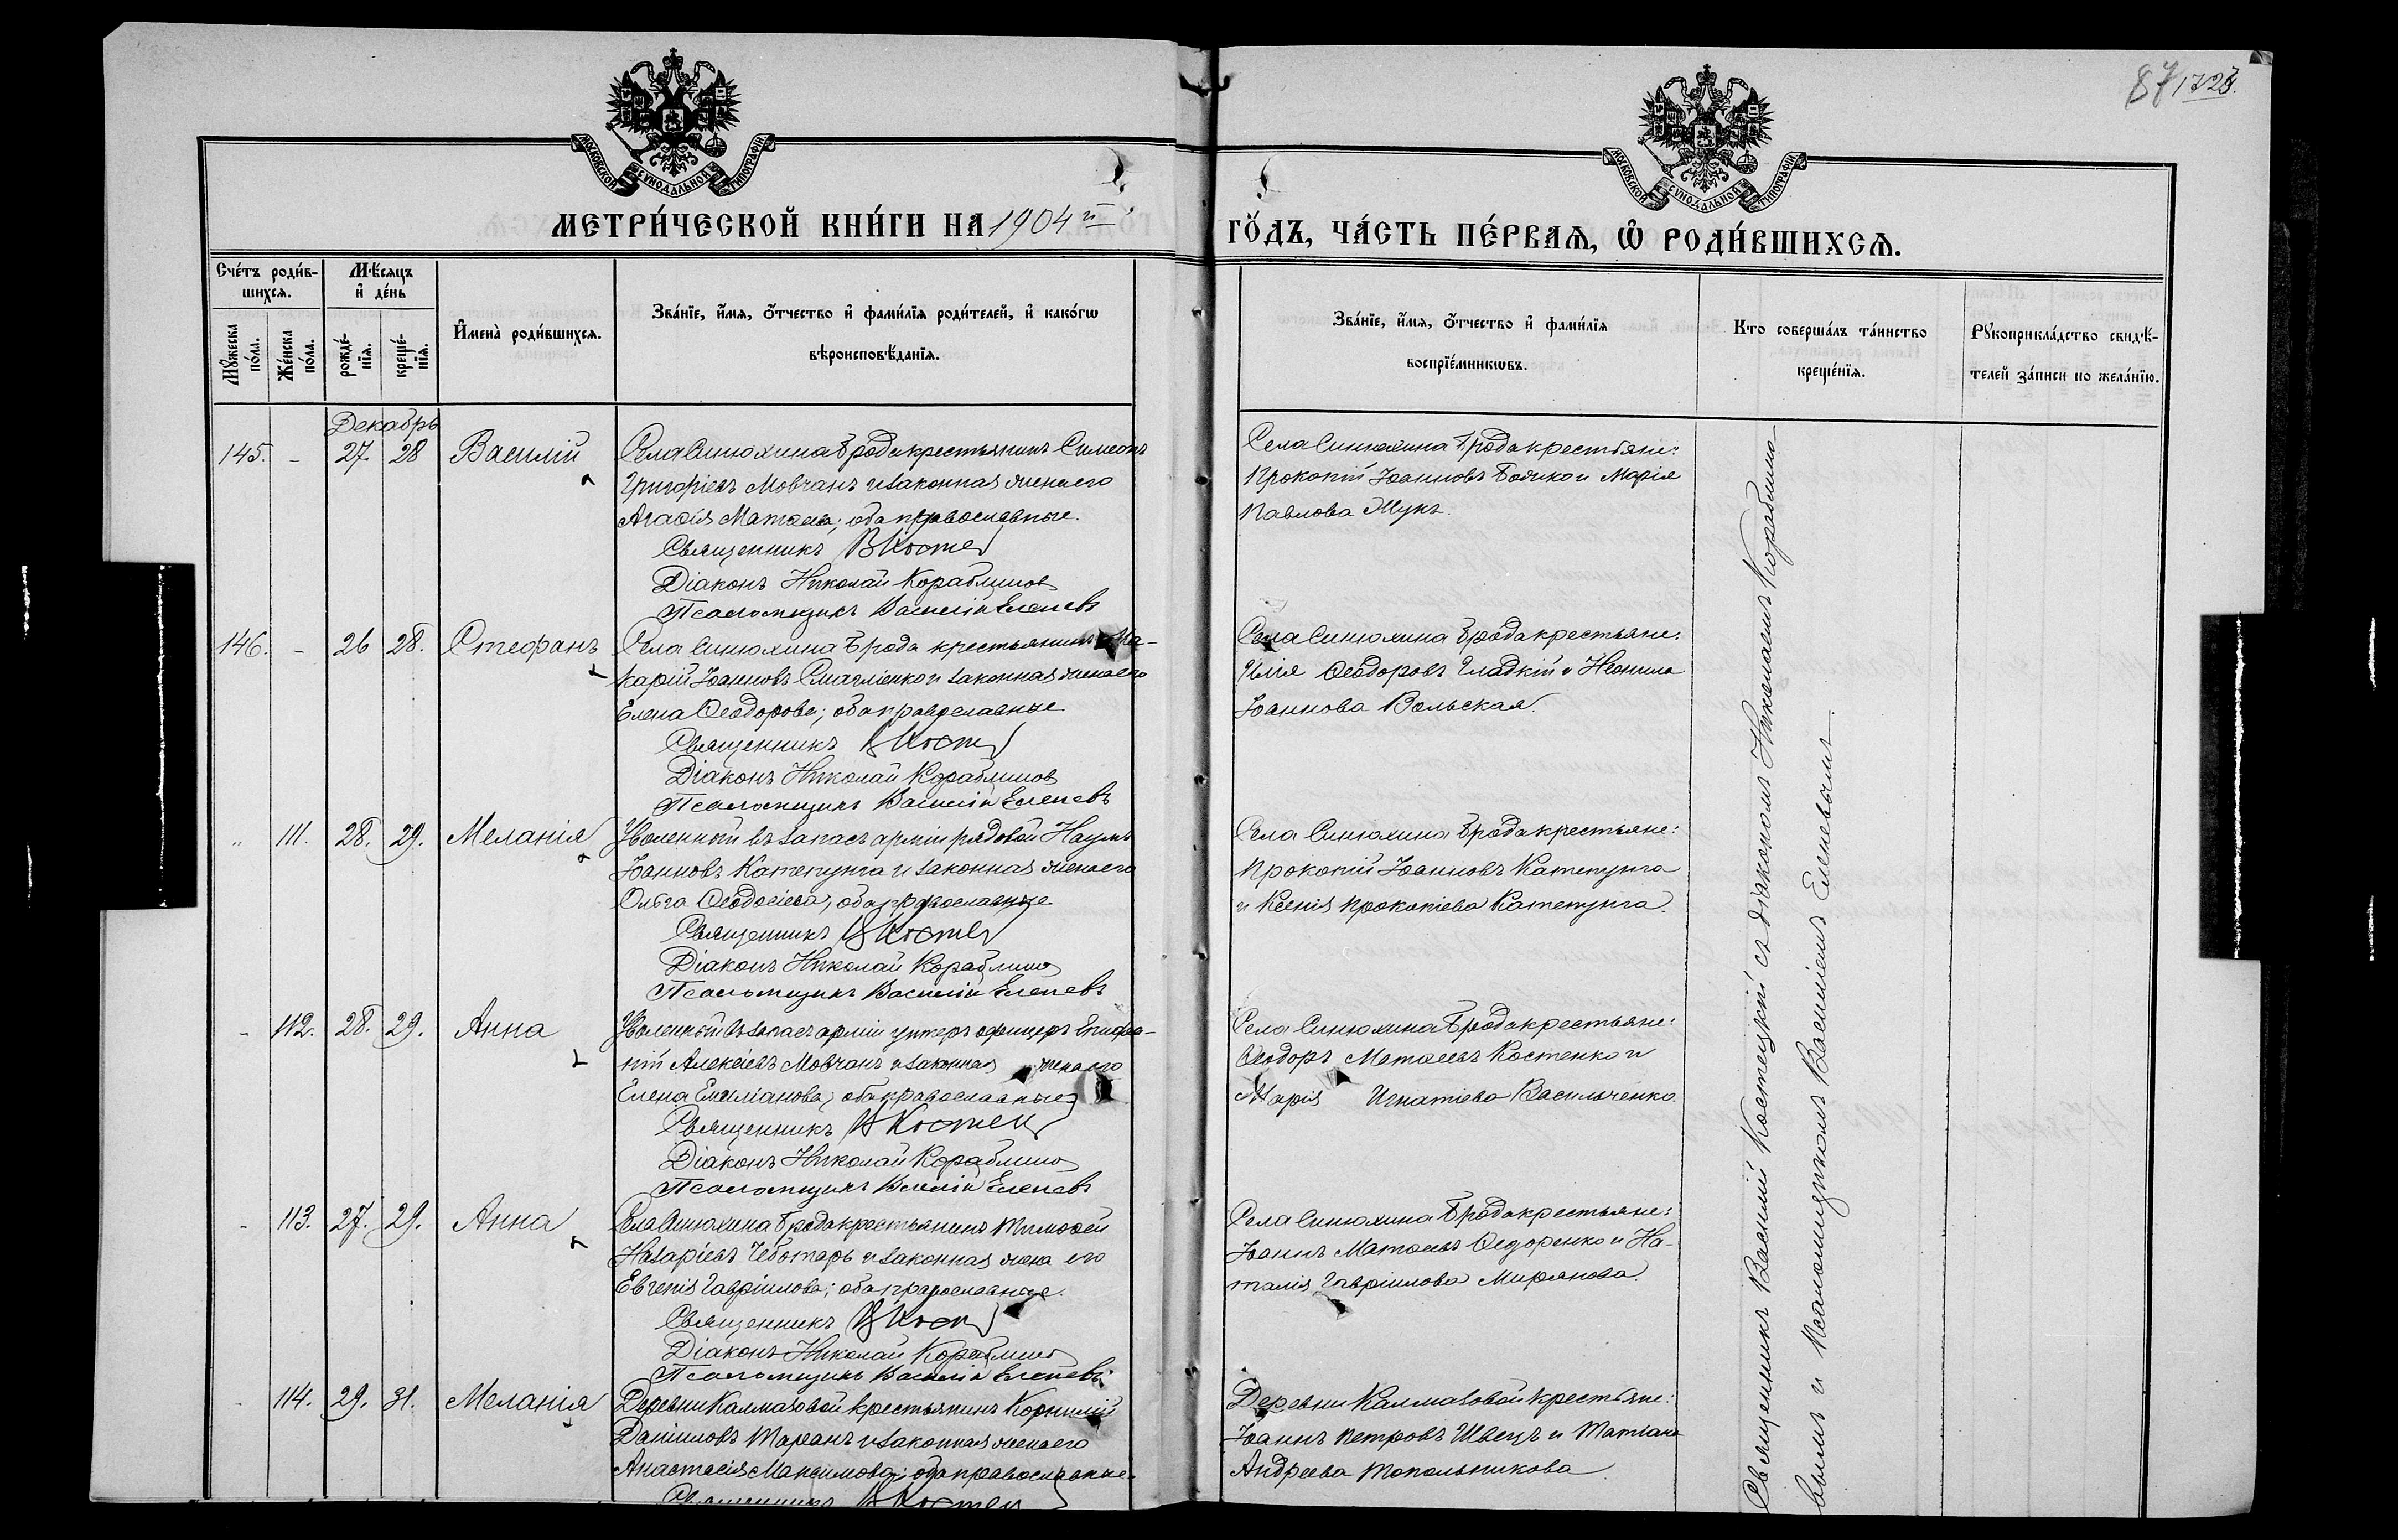 87 1723.
МОСКОВСКОЙ СѴНОДАЛЬНОЙ ТИПОГРАФІИ
МОСКОВСКОЙ СѴНОДАЛЬНОЙ ТИПОГРАФІИ
МЕТРИ́ЧЕСКОЙ КНИ́ГИ НА 1904й
ГО́ДЪ, ЧА́СТЬ ПЕ́РВАѦ, Ѡ҆ РОДИ́ВШИХСѦ.
Сче́тъ роди́в-
шихсѧ.
Мꙋ́жеска
по́ла.
Же́нска
по́ла.
Мѣ́сѧцъ
и҆ де́нь
рожде́-
нїѧ.
креще́-
нїѧ.
И҆мена̀ роди́вшихсѧ.
Зва́нїе, и҆́мѧ, ѻ҆́тчество и҆ фами́лїѧ роди́телей, и҆ како́гѡ
вѣроисповѣ́данїѧ.
Зва́нїе, и҆́мѧ, ѻ҆́тчество и҆ фами́лїѧ
воспрїе́мникѡвъ.
Кто соверша́лъ та́инство
креще́нїѧ.
Рꙋкоприкла́дство свидѣ́-
телей за́писи по жела́нїю.
Декабрь
145. - 27. 28 Василій
Села Синюхина Брода крестьянинъ Симеонъ
Григоріевъ Мовчанъ и законная жена его
Агаѳія Матѳева; оба православные.
Священникъ
Діаконъ Николай Кораблинов
Псаломщикъ Василій Еленевъ
Села Синюхина Брода крестьяне:
Прокопій Іоанновъ Бойко и Марія
Павлова Жукъ.
146. - 26 28. Стефанъ
Села Синюхина Брода крестьянинъ Ма-
карій Іоанновъ и законная жена его
Елена Ѳеодорова; оба православные.
Священникъ
Діаконъ Николай Кораблинов
Псаломщикъ Василій Еленевъ
Села Синюхина Брода крестьяне:
Илія Ѳеодоровъ Гладкій и Неонила
Іоаннова Вольская.
" 111. 28. 29. Меланія
Уволенный въ запасъ арміи рядовой Наумъ
Іоанновъ Катепунга и законная жена его
Ольга Ѳеодосіева; оба православные.
Священникъ
Діаконъ Николай Кораблинов
Псаломщикъ Василій Еленевъ
Села Синюхина Брода крестьяне:
Прокопій Іоанновъ Катепунга
и Ксенія Прокопіева Катепунга.
- 112. 28. 29. Анна
Уволенный въ запасъ арміи унтеръ офицеръ Епифа-
ній Алексѣевъ Мовчанъ и законная жена его
Елена Емиліанова; оба православные
Священникъ
Діаконъ Николай Кораблинов
Псаломщикъ Василій Еленевъ
Села Синюхина Брода крестьяне:
Ѳеодоръ Матѳеевъ Костенко и
Марія Игнатіева Васильченко.
- 113. 27. 29. Анна
Села Синюхина Брода крестьянинъ Тимоѳей
Назаріевъ Чеботарь и законная жена его
Евгенія Гавріилова; оба православные.
Священникъ
Діаконъ Николай Кораблинов
Псаломщикъ Василій Еленевъ
Села Синюхина Брода крестьяне:
Іоаннъ Матѳеевъ Ѳедоренко и На-
талія Гавріилова Мирянова.
- 114. 29. 31. Меланія
Деревни Калмазовой крестьянинъ Корнилій
Даніиловъ Таранъ и законная жена его
Анастасія Максимова; оба православные.
Священникъ
Деревни Калмазовой крестьяне:
Іоаннъ Петровъ Швецъ и Татіана
Андреева Топольникова
Священникъ Василій Костецкій съ діакономъ Николаемъ Кораблино-
вымъ и Псаломщикомъ Василіемъ Еленевымъ